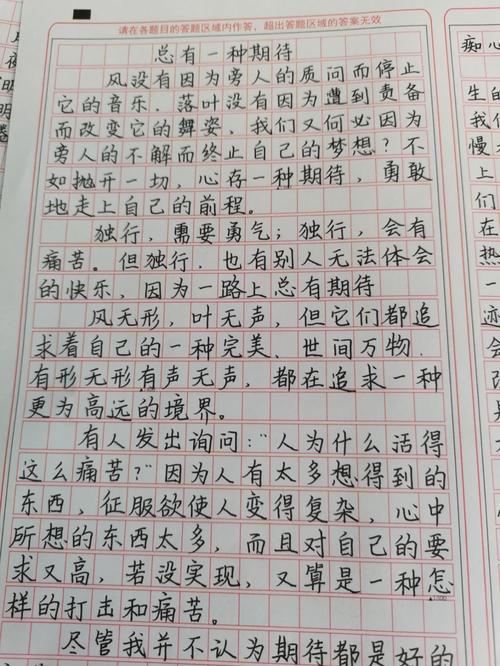 请在各题目的答题区域内作答,超出答题区域的答案无效
总有一种期待
风没有因为旁人的质问而停止
它的音乐,落叶没有因为遭到责备
而改变它的舞姿,我们又何必因为
旁人的不解而终止自己的梦想?不
如抛开一切,心存一种期待,勇敢
地走上自己的前程。
独行,需要勇气;独行,会有
痛苦。但独行,也有别人无法体会
的快乐,因为一路上总有期待
风无形,叶无声,但它们都追
求着自己的一种完美、世间万物,
有形无形有声无声,都在追求一种
更为高远的境界。
有人发出询问:“人为什么活得
这么痛苦?”因为人有太多想得到的
东西,征服欲使人变得复杂,心中
所想的东西太多,而且对自己的要
求又高,若没实现,又算是一种怎
样的打击和痛苦。
尽管我并不认为期待都是好的
痴心
生的
我们
慢
上
热
迹
的